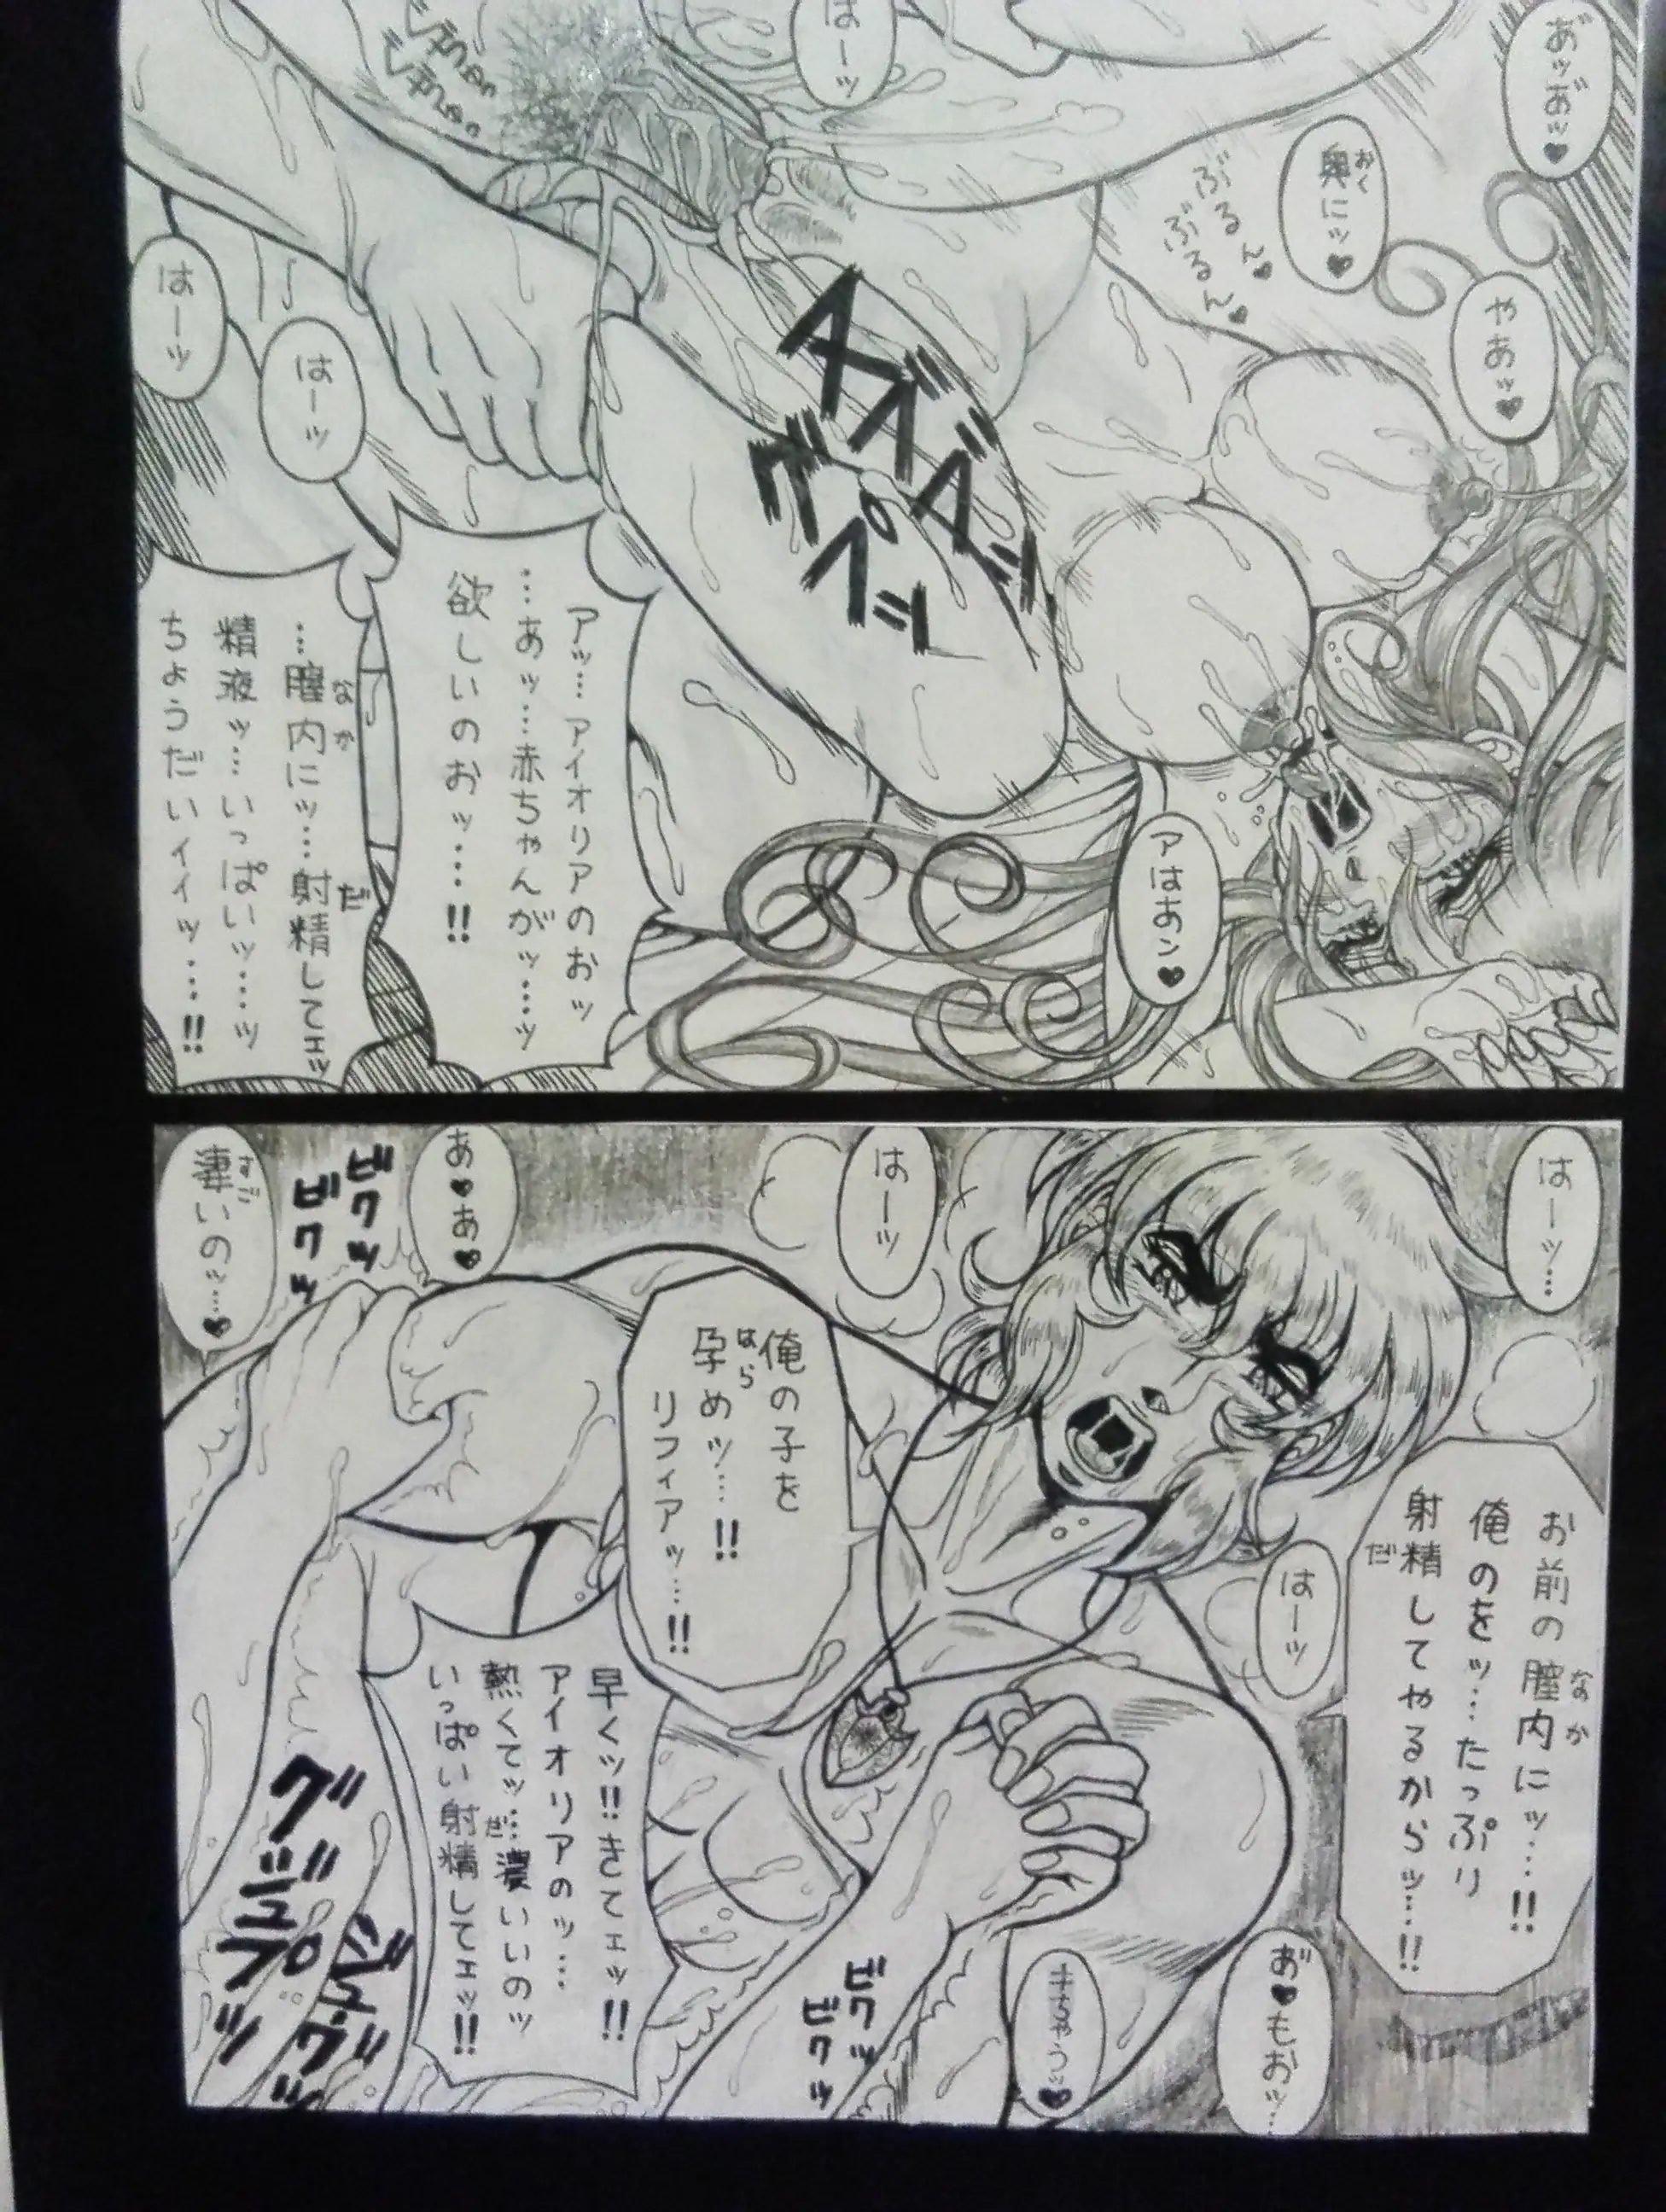 あ゛ッあ゛ッ♥
奥にッ♥
おく
やあッ♥
ぶるん♥
ぶるん♥
はーッ
アはあン♥
アッ…アイオリアのおッ
…あッ…赤ちゃんがッ…ッ
欲しいのおッ…!!
はーッ
はーッ
…膣内にッ…射精してェッ
なか
だ
精液ッ…いっぱいッ…ッ
ちょうだいィィッ…!!
はーッ…
お前の膣内にッ…!!
なか
俺のをッ…たっぷり
射精してやるからッ…!!
だ
はーッ
はーッ
俺の子を
孕めッ…!!
はら
リフィアッ…!!
あ♥あ♥
ビクッ
ビクッ
凄いのッ…♥
あ゛♥もおッ…
早くッ!!きてェッ!!
アイオリアのッ…
熱くてッ…濃いいのッ
いっぱい射精してェッ!!
だ
ビクッ
ビクッ